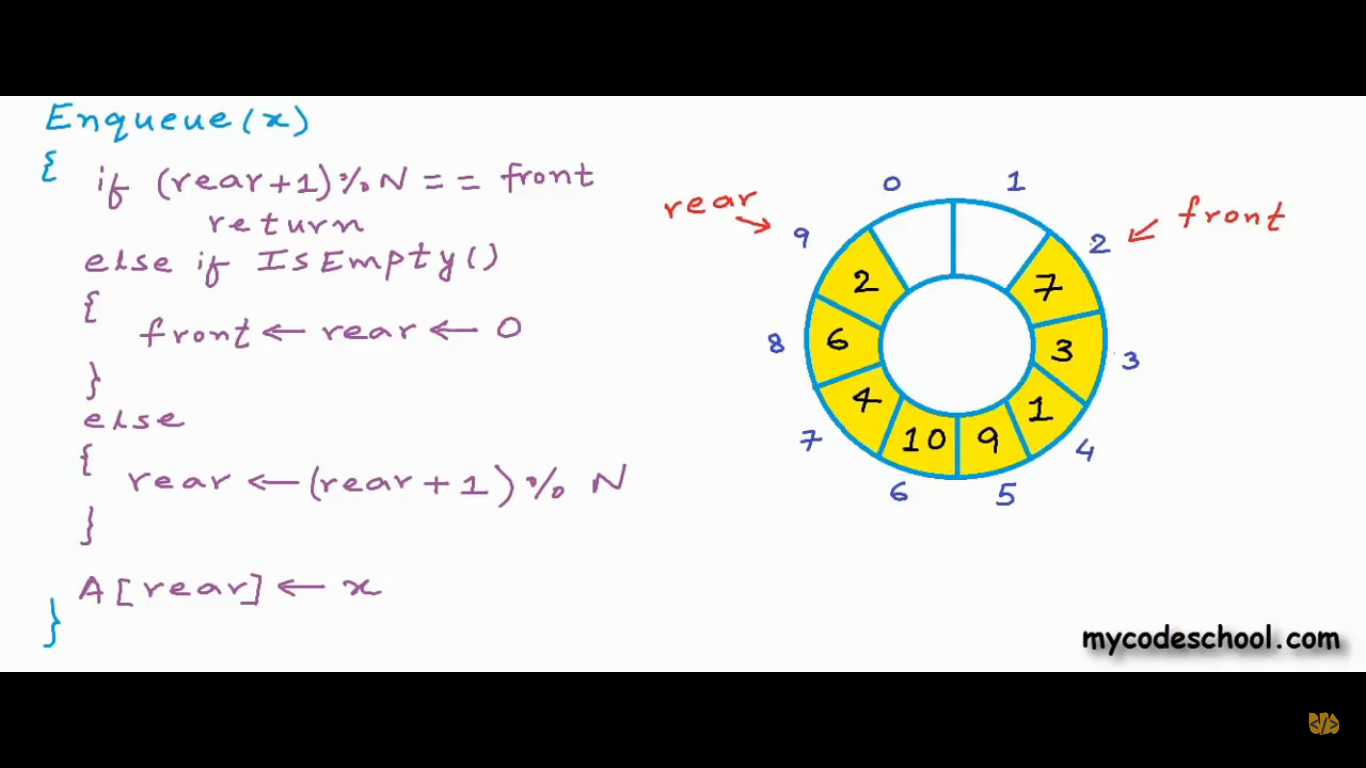 Enqueue(x)
{
if (rear+1)%N == front
return
else if IsEmpty()
{
front ← rear ← 0
}
else
{
rear ← (rear+1)% N
}
A[rear] ← x
}
rear
front
0
1
2
3
4
5
6
7
8
9
7
3
1
9
10
4
6
2
mycodeschool.com